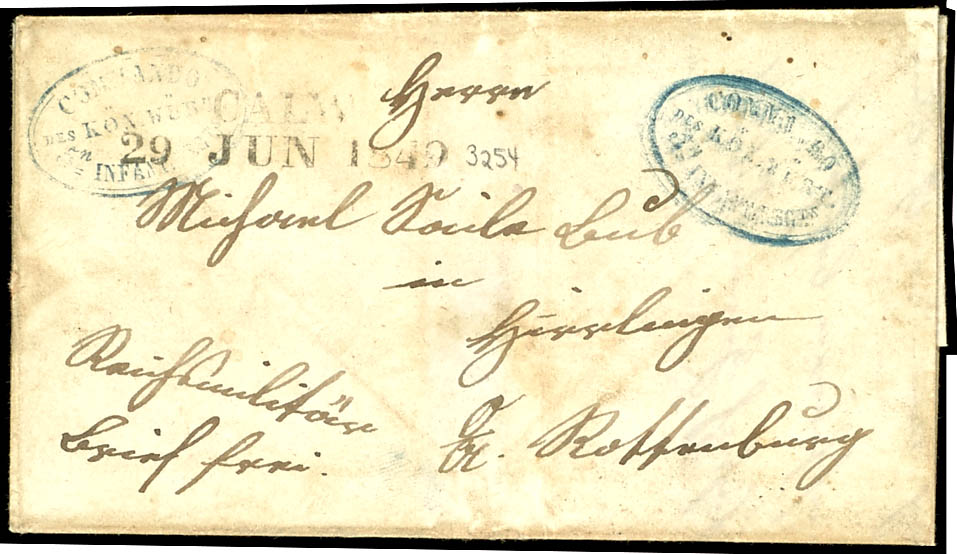 COMMANDO
DES KÖN. WÜRT
INFANT
CALW
29 JUN 1849
3254
Herrn
Michael Saile
in
Hirrlingen
Reichsmilitär
Brief frei.
Rottenburg
COMMANDO
DES KÖN. WÜRT